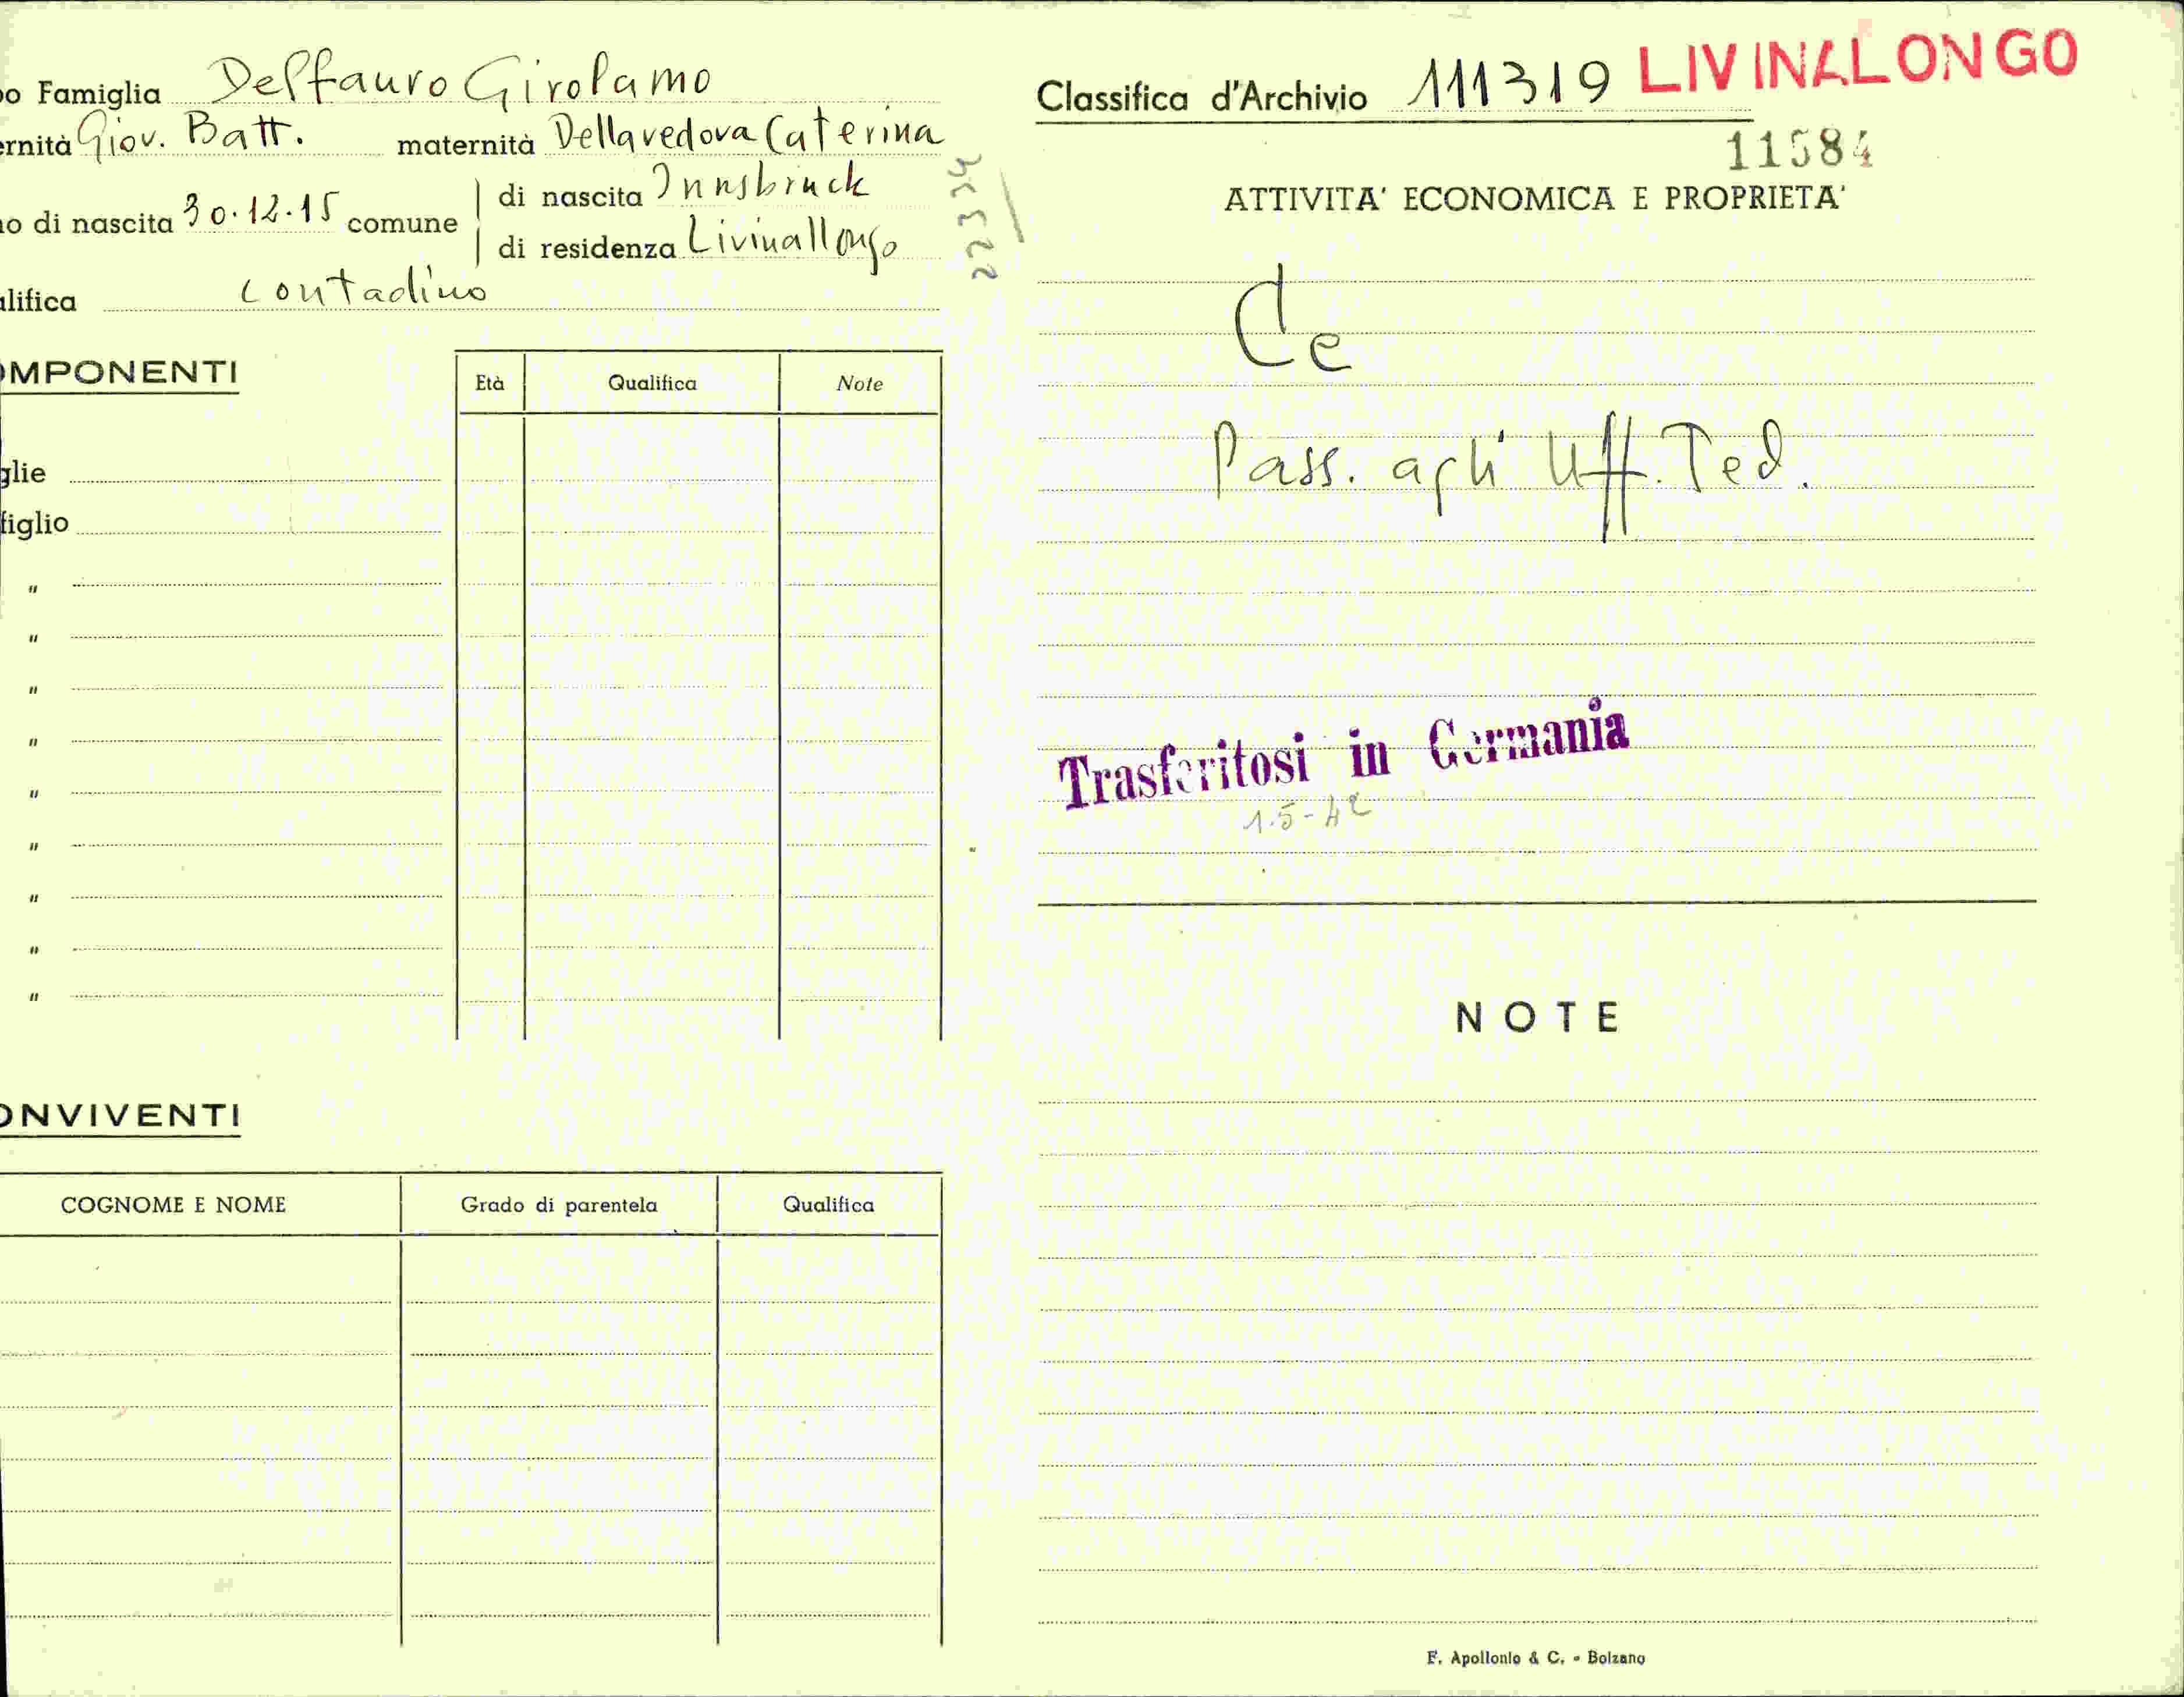 o Famiglia Delfauro Girolamo
ernità Giov. Batt. maternità Dellavedova Caterina
o di nascita 30.12.15 comune di nascita Innsbruck
di residenza Livinallongo
lifica contadino
22334
OMPONENTI
Età Qualifica Note
glie
figlio
"
"
"
"
"
"
"
"
"
ONVIVENTI
COGNOME E NOME Grado di parentela Qualifica
Classifica d'Archivio 111319 LIVINALONGO
11584
ATTIVITA' ECONOMICA E PROPRIETA'
Ce
Pass. agli Uff. Ted.
Trasferitosi in Germania
1.5-42
NOTE
F. Apollonio & C. - Bolzano